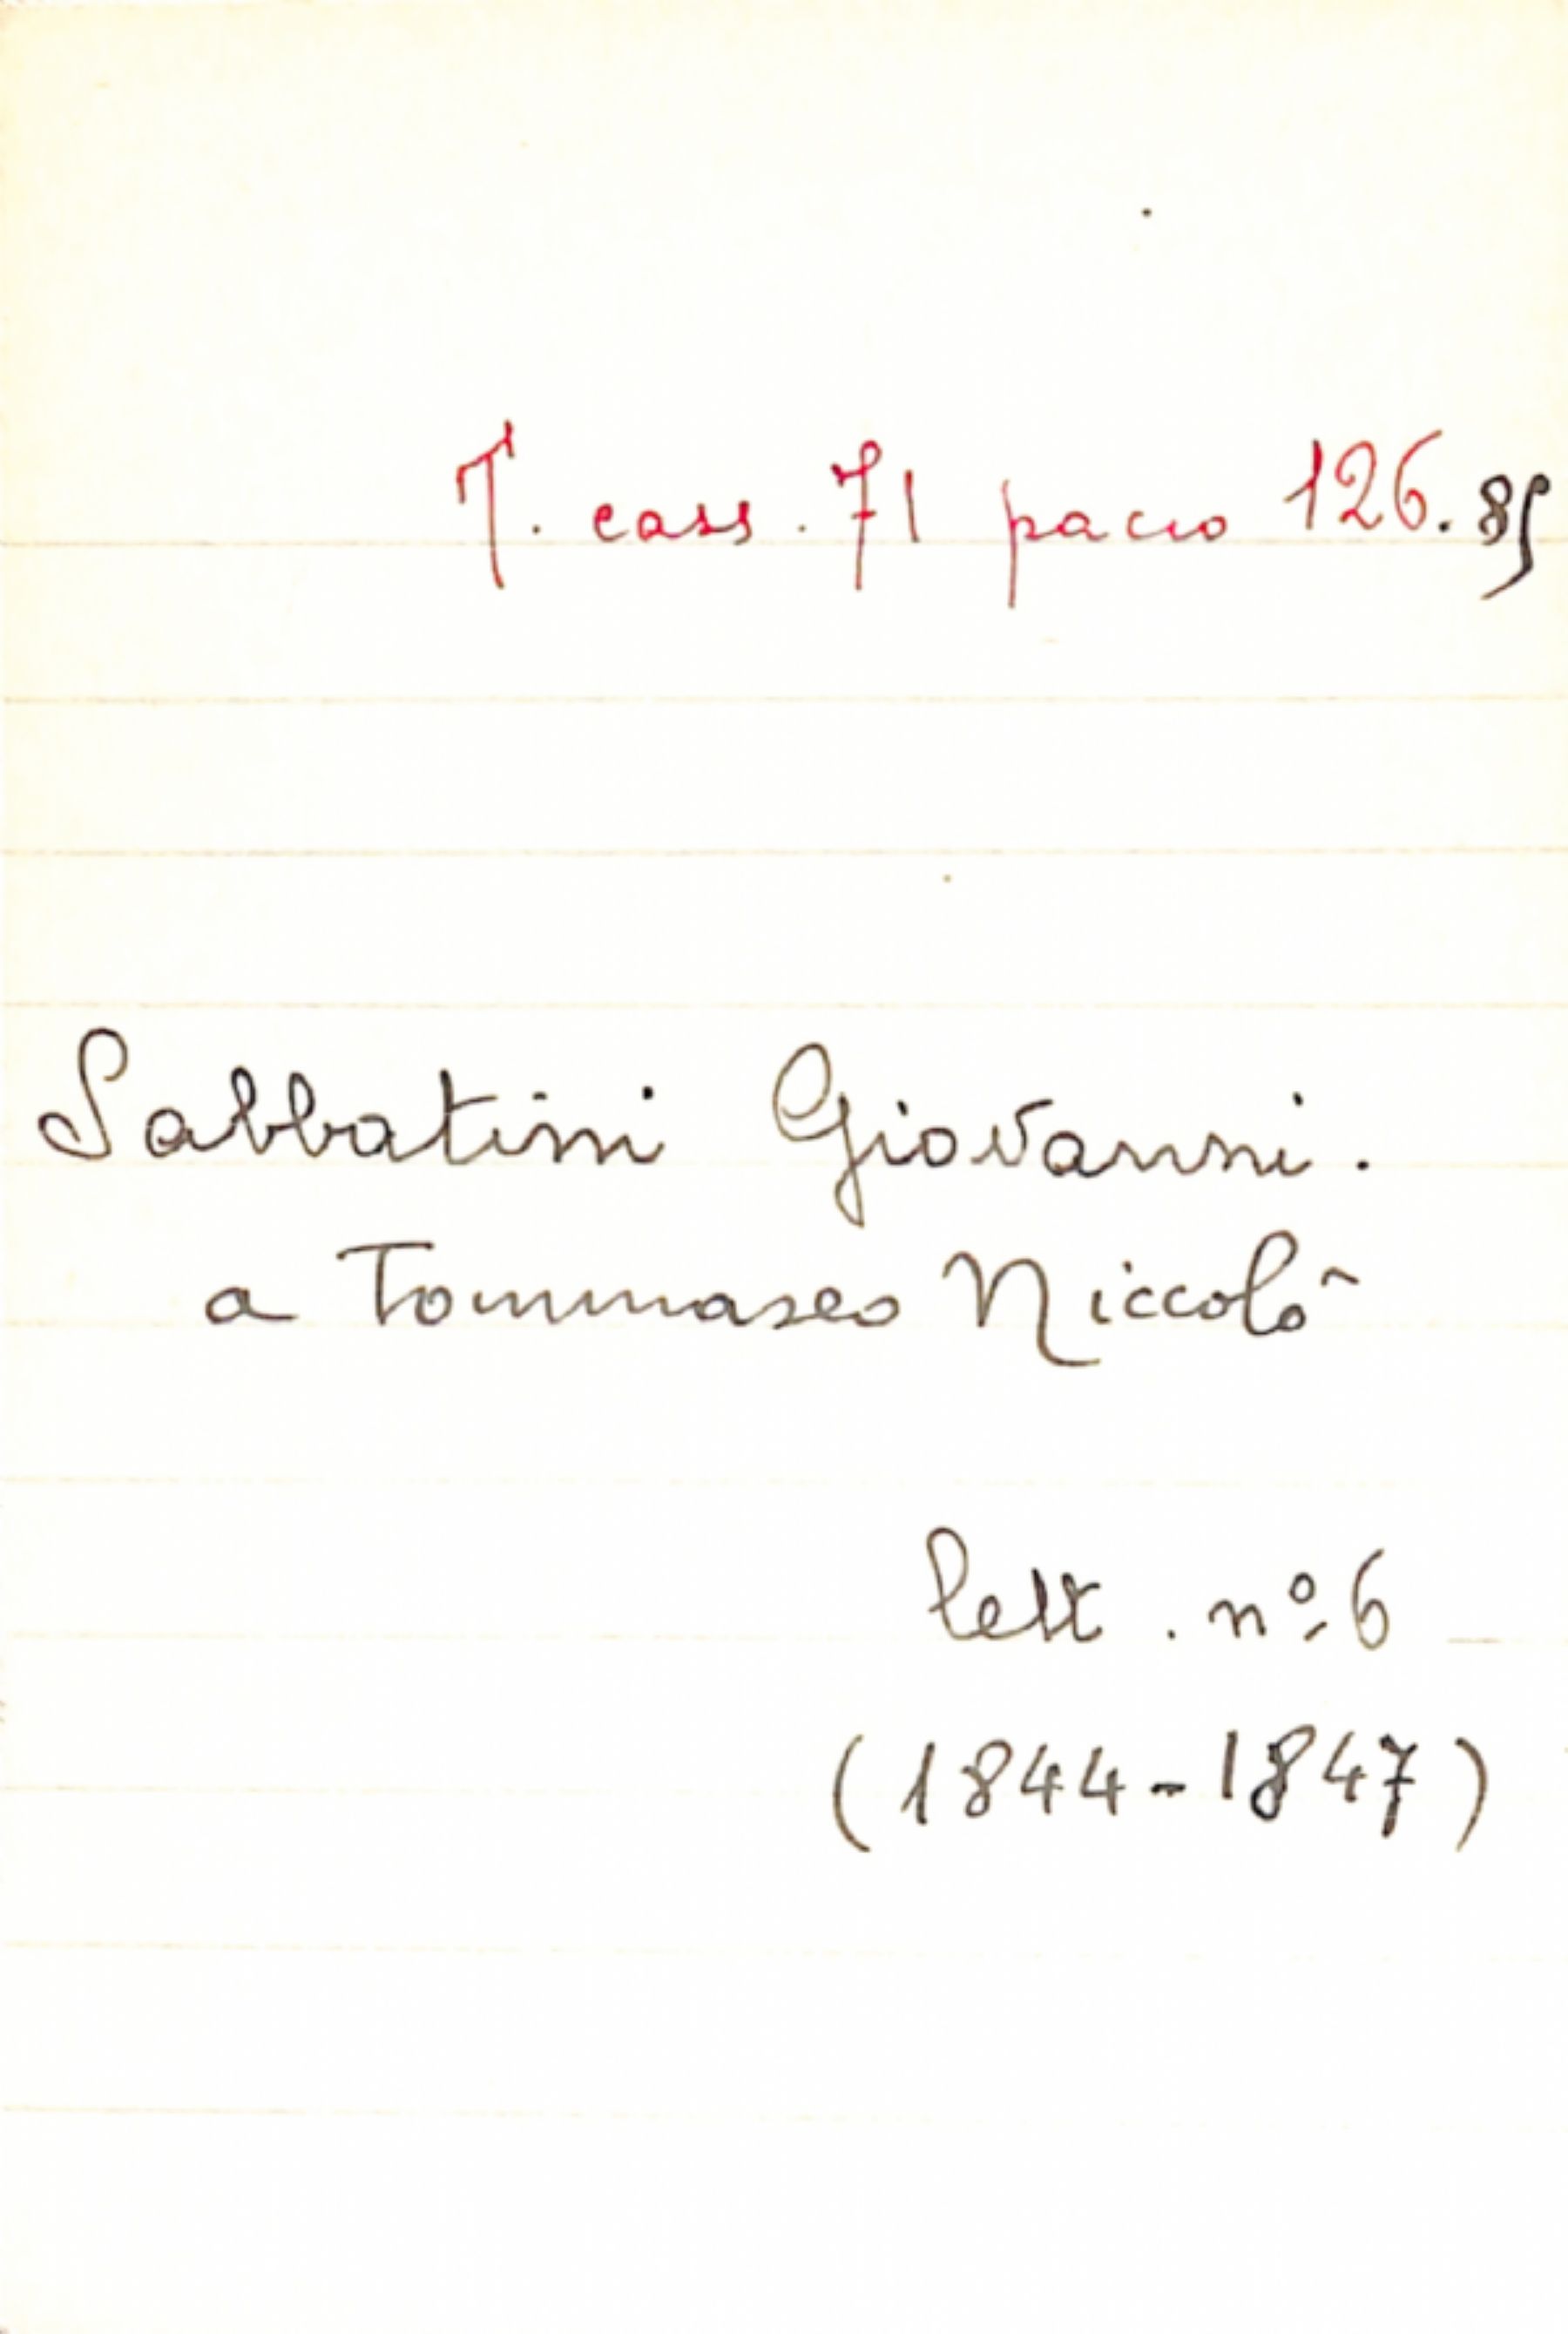 T. cass. 71 pacco 126.85
Sabbatini Giovanni.
a Tommaseo Niccolò
lett. nº 6
(1844-1847)